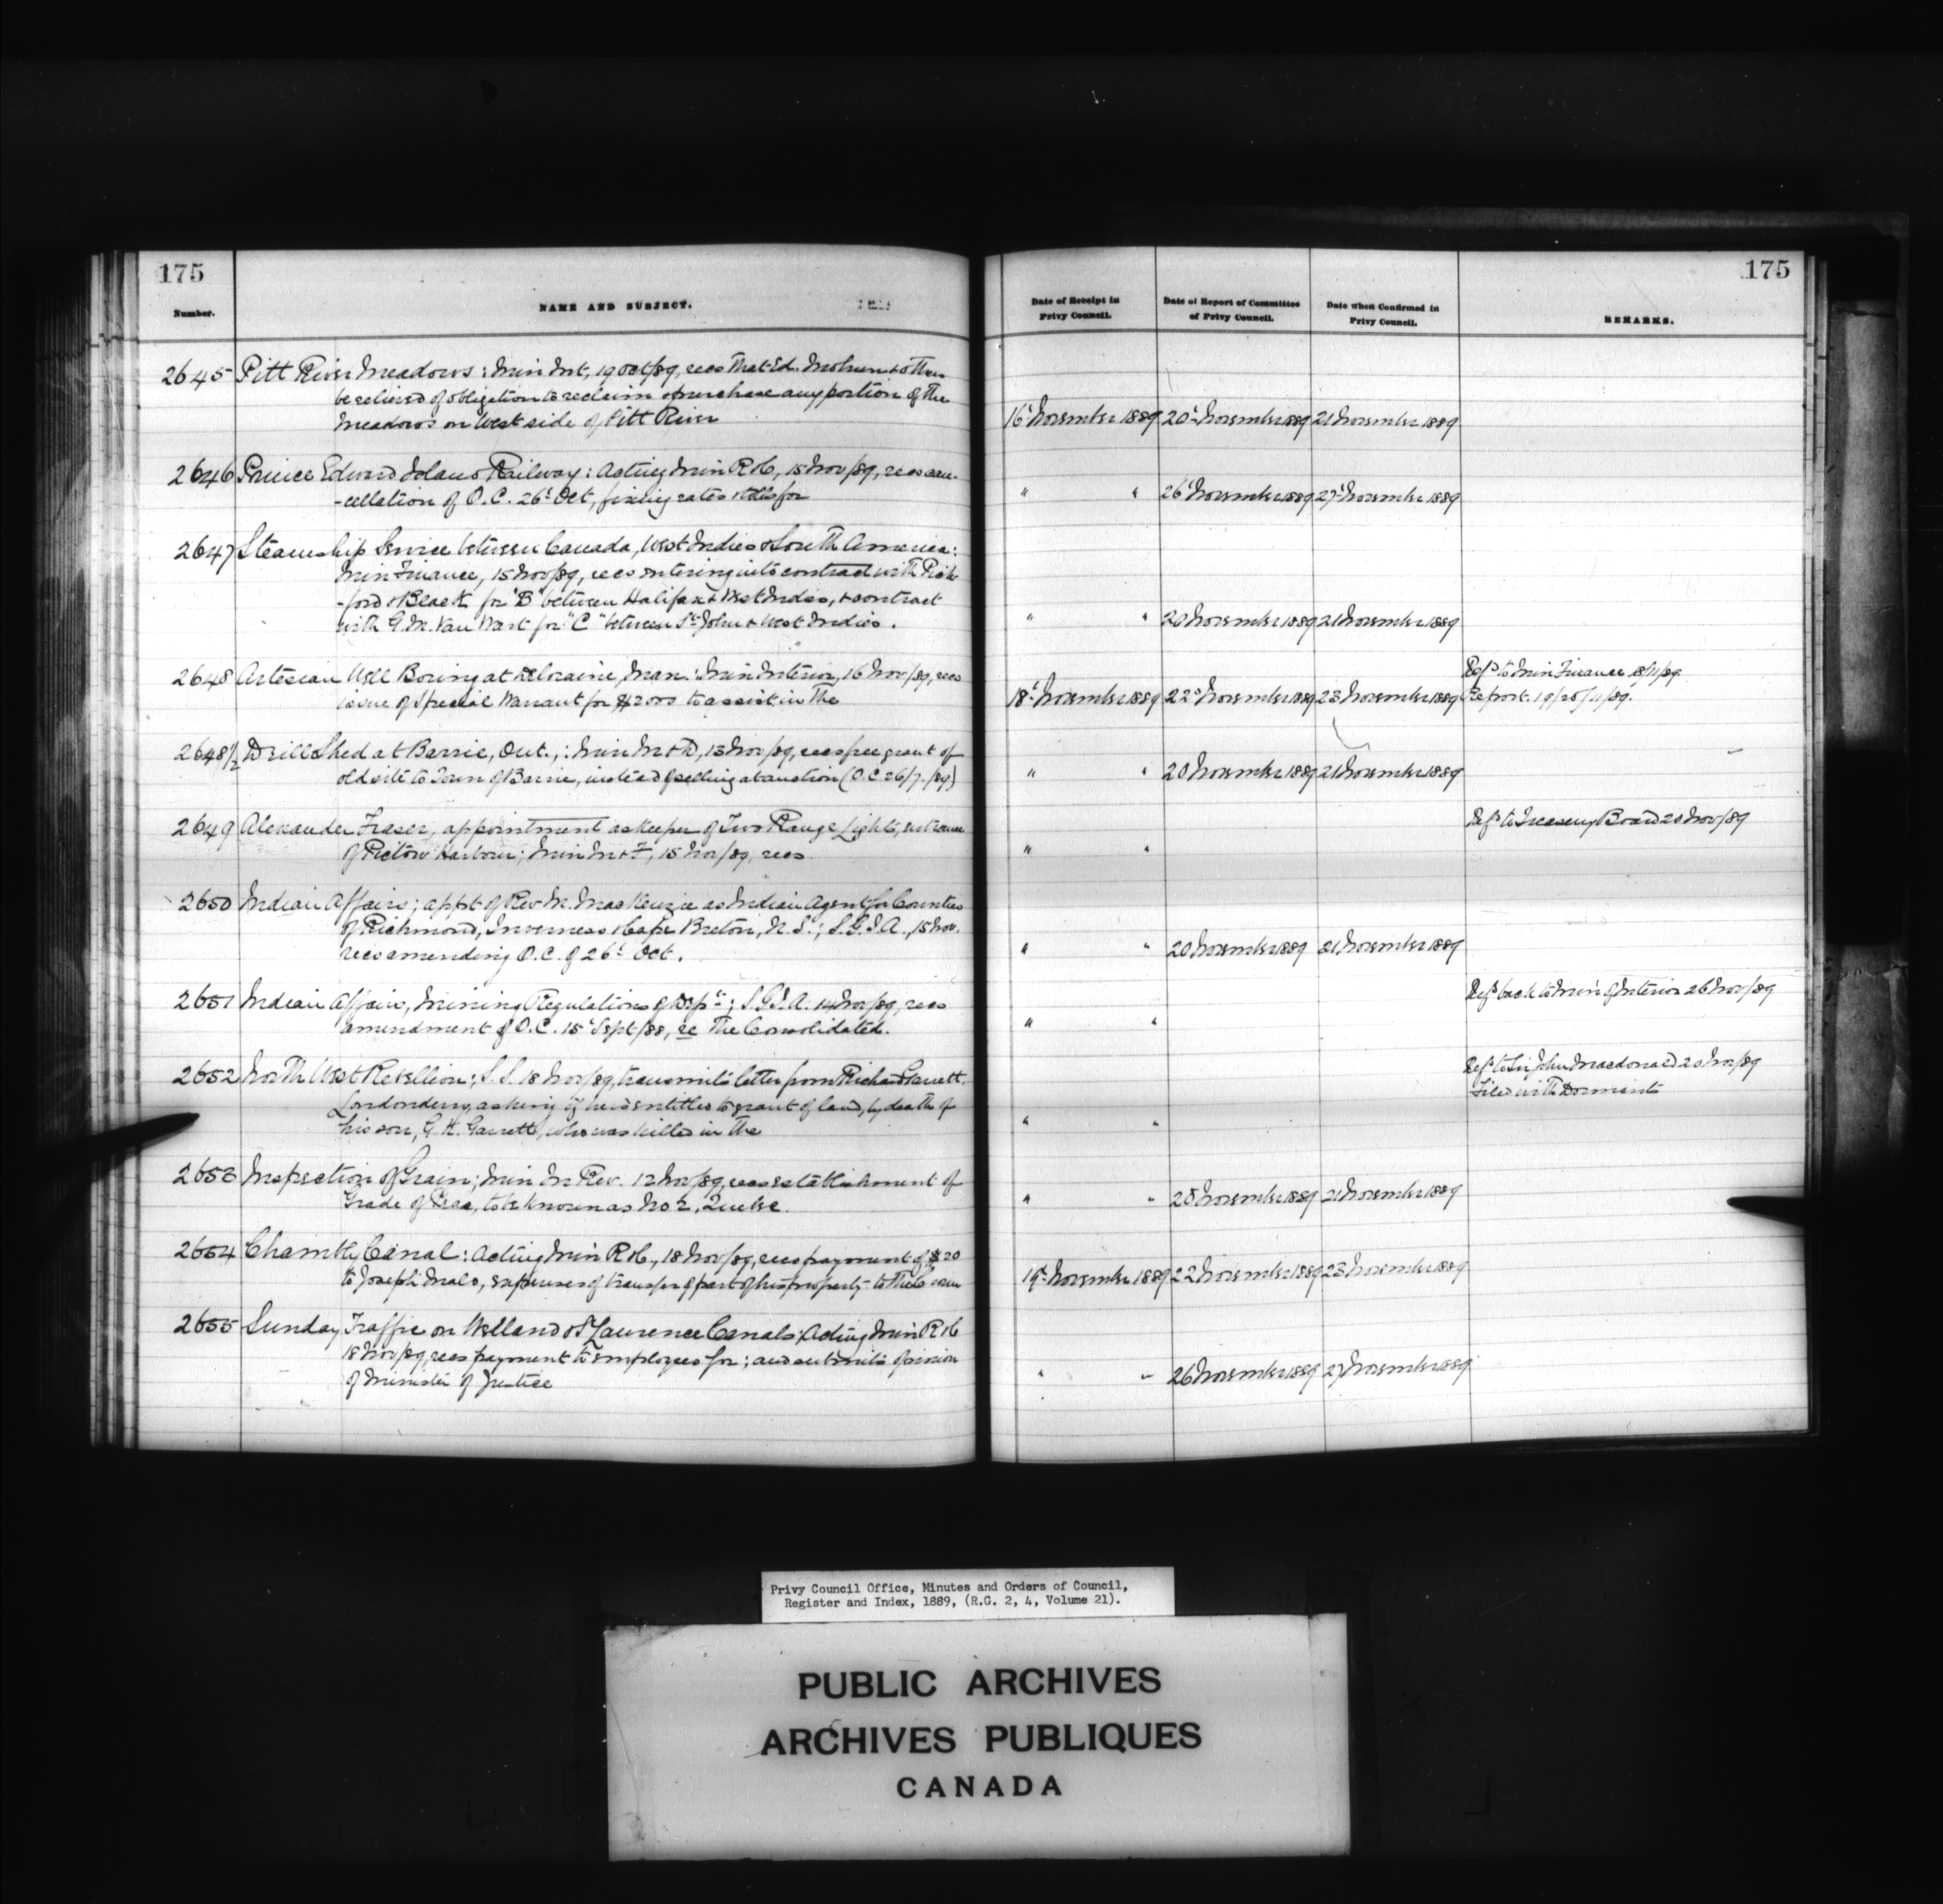 175
Number.
NAME AND SUBJECT.
2645 Pitt River Meadows: Min Int, 19 Oct/89, recs that Ed. Mohun & others
be relieved of obligation to reclaim & purchase any portion of the
Meadows on West side of Pitt River
2646 Prince Edward Island Railway: Acting Min R & C, 15 Nov/89, recs can-
-cellation of O.C. 26t Oct, fixing rates & tolls for
2647 Steamship Service between Canada, West Indies & South America:
Min Finance, 15 Nov/89, recs entering into contract with Pick-
-ford & Black for "B" between Halifax & West Indies, & contract
with G. M. Van Wart for "C" between St John & West Indies.
2648 Artesian Well Boring at Deloraine, Man: Min Interior, 16 Nov/89, recs
issue of Special Warrant for $2000 to assist in the
2648½ Drill Shed at Barrie, Ont.,: Min M & D, 13 Nov/89, recs free grant of
old site to Town of Barrie, instead of selling at auction (O.C 26/7/89)
2649 Alexander Fraser, appointment as Keeper of Two Range Lights, entrance
of Pictou Harbour; Min M & F, 15 Nov/89, recs
2650 Indian Affairs; appt of Rev M. MacKenzie as Indian Agent for Counties
of Richmond, Inverness & Cape Breton, N.S.; S.G.I.A., 15 Nov.
recs amending O.C. of 26t Oct.
2651 Indian Affairs, Mining Regulations of Dept; S.G.I.A. 14 Nov/89, recs
amendment of O.C. 15t Sept/88, re The Consolidated.
2652 North West Rebellion; S.S. 18 Nov/89, transmits letter from Richard Garrett,
Londonderry, asking if he is entitled to grant of land, by death of
his son, G. K. Garrett, who was killed in the
2653 Inspection of Grain; Min In Rev. 12 Nov/89, recs establishment of
Grade of Peas, to be known as No 2, Quebec.
2654 Chambly Canal: Acting Min R & C., 18 Nov/89, recs payment of $20
to Joseph Malo, expenses of transfer of part of his property to the Crown
2655 Sunday Traffic on Welland & St Laurence Canals: Acting Min R & C
18 Nov/89, recs payment to employees for; and submits opinion
of Minister of Justice
175
Date of Receipt in
Privy Council.
Date of Report of Committee
of Privy Council.
Date when Confirmed in
Privy Council.
REMARKS.
16t November 1889 20t November 1889 21 November 1889
" " 26t November 1889 27t November 1889
" " 20 November 1889 21 November 1889
Refd to Min Finance 18/11/89
18t November 1889 22d November 1889 23 November 1889 Report 19/20/11/89.
" " 20 November 1889 21 November 1889
Refd to Treasury Board 20 Nov/89
" "
" " 20 November 1889 21 November 1889
Refd back to Min of Interior 26 Nov/89
" "
Refd to Sir John Macdonald 20 Nov/89
Filed with Dormants
" "
" " 20 November 1889 21 November 1889
19t November 1889 22 November 1889 23 November 1889
" " 26 November 1889 27 November 1889
Privy Council Office, Minutes and Orders of Council,
Register and Index, 1889, (R.G. 2, 4, Volume 21).
PUBLIC ARCHIVES
ARCHIVES PUBLIQUES
CANADA